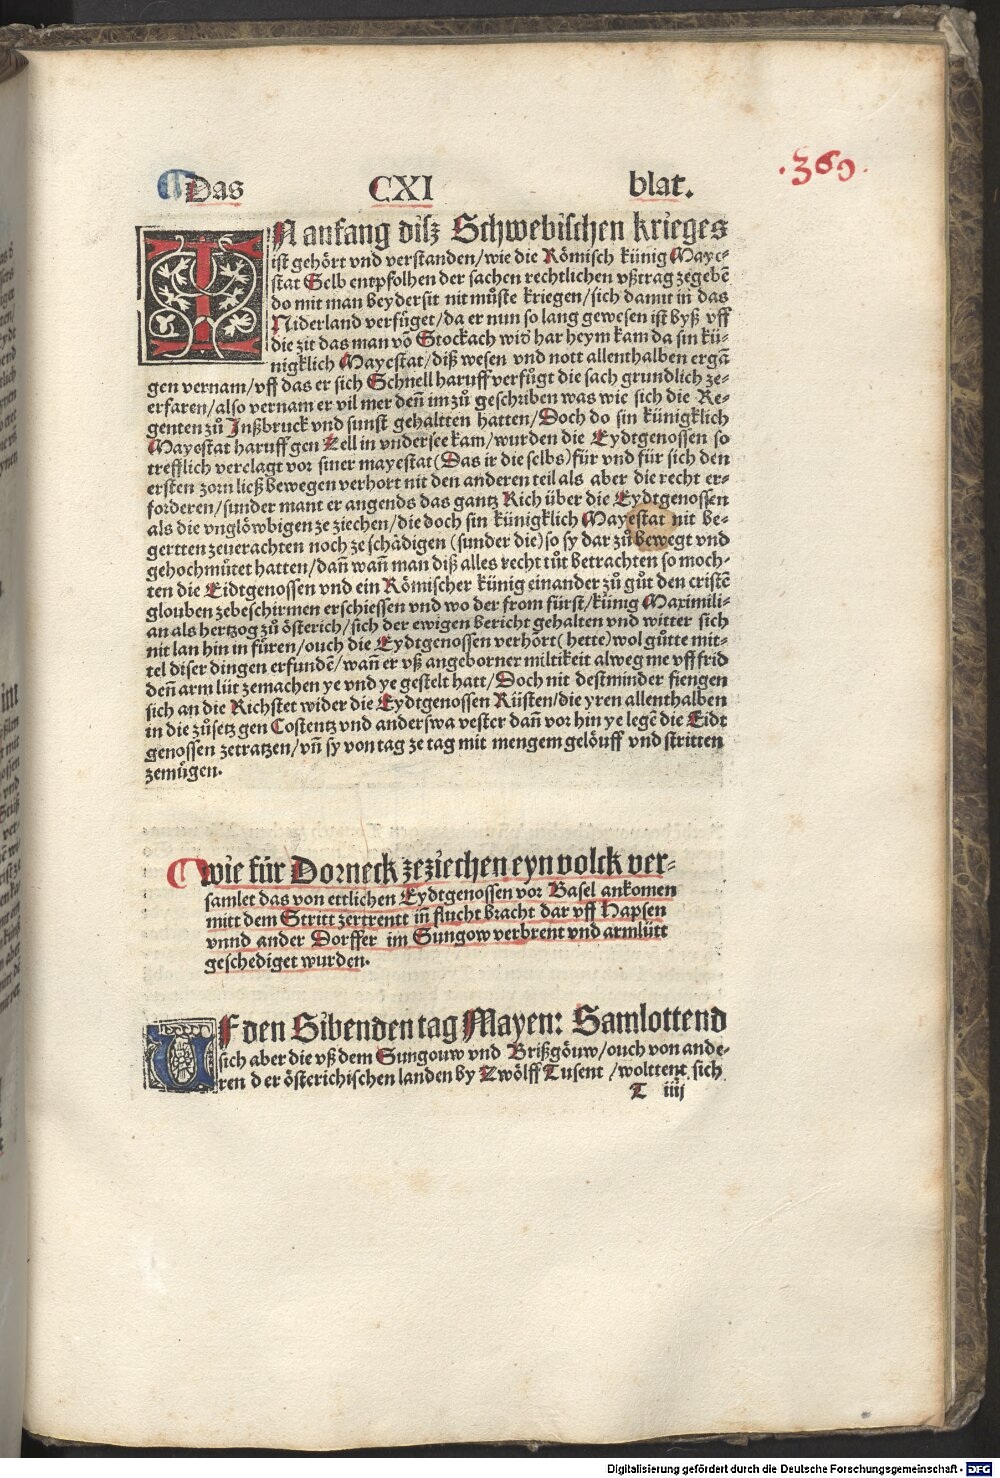 Das CXI blat. .369.
IN anfang disz Schwebischen krieges
ist gehört vnd verstanden/wie die Römisch künig Maye-
stat Selb entpfolhen der sachen rechtlichen vßtrag zegebē
do mit man beydersit nit můste kriegen/sich damit in das
Niderland verfüget/da er nun so lang gewesen ist byß vff
die zit das man vō Stockach wid har heym kam da sin kü-
nigklich Mayestat/diß wesen vnd nott allenthalben ergā
gen vernam/vff das er sich Schnell haruff verfügt die sach grundlich ze-
erfaren/also vernam er vil mer deñ im zů geschriben was wie sich die Re-
genten zů Jnßbruck vnd sunst gehaltten hatten/Doch do sin künigklich
Mayestat haruff gen Zell in vndersee kam/wurden die Eydtgenossen so
trefflich verclagt vor siner mayestat(Das ir die selbs)für vnd für sich den
ersten zorn ließ bewegen verhort nit den anderen teil als aber die recht er-
forderen/sunder mant er angends das gantz Rich über die Eydtgenossen
als die vnglöwbigen ze ziechen/die doch sin künigklich Mayestat nit be-
gertten zeuerachten noch ze schädigen (sunder die)so sy dar zů bewegt vnd
gehochmůtet hatten/dañ wañ man diß alles recht tůt betrachten so moch-
ten die Eidtgenossen vnd ein Römischer künig einander zů gůt den cristē
glouben zebeschirmen erschiessen vnd wo der from fürst/künig Maximili-
an als hertzog zů österich/sich der ewigen bericht gehalten vnd witter sich
nit lan hin in füren/ouch die Eydtgenossen verhört(hette)wol gůtte mit-
tel diser dingen erfundē/wañ er vß angeborner miltikeit alweg me vff frid
deñ arm lüt zemachen ye vnd ye gestelt hatt/Doch nit destminder fiengen
sich an die Richstet wider die Eydtgenossen Rüsten/die yren allenthalben
in die zůsetz gen Costentz vnd anderswa vester dañ vor hin ye legē die Eidt
genossen zetratzen/vñ sy von tag ze tag mit mengem gelöuff vnd stritten
zemůgen.
wie für Dorneck ze ziechen eyn volck ver-
samlet das von ettlichen Eydtgenossen vor Basel ankomen
mitt dem Stritt zertrentt iñ flucht bracht dar vff Hapsen
vnnd ander Dorffer im Sungow verbrent vnd armlütt
geschediget wurden.
UF den Sibenden tag Mayen: Samlottend
sich aber die vß dem Sungouw vnd Brißgöuw/ouch von ande-
ren der österichischen landen by Zwölff Tusent /woltten sich
T iiij
Digitalisierung gefördert durch die Deutsche Forschungsgemeinschaft - DFG